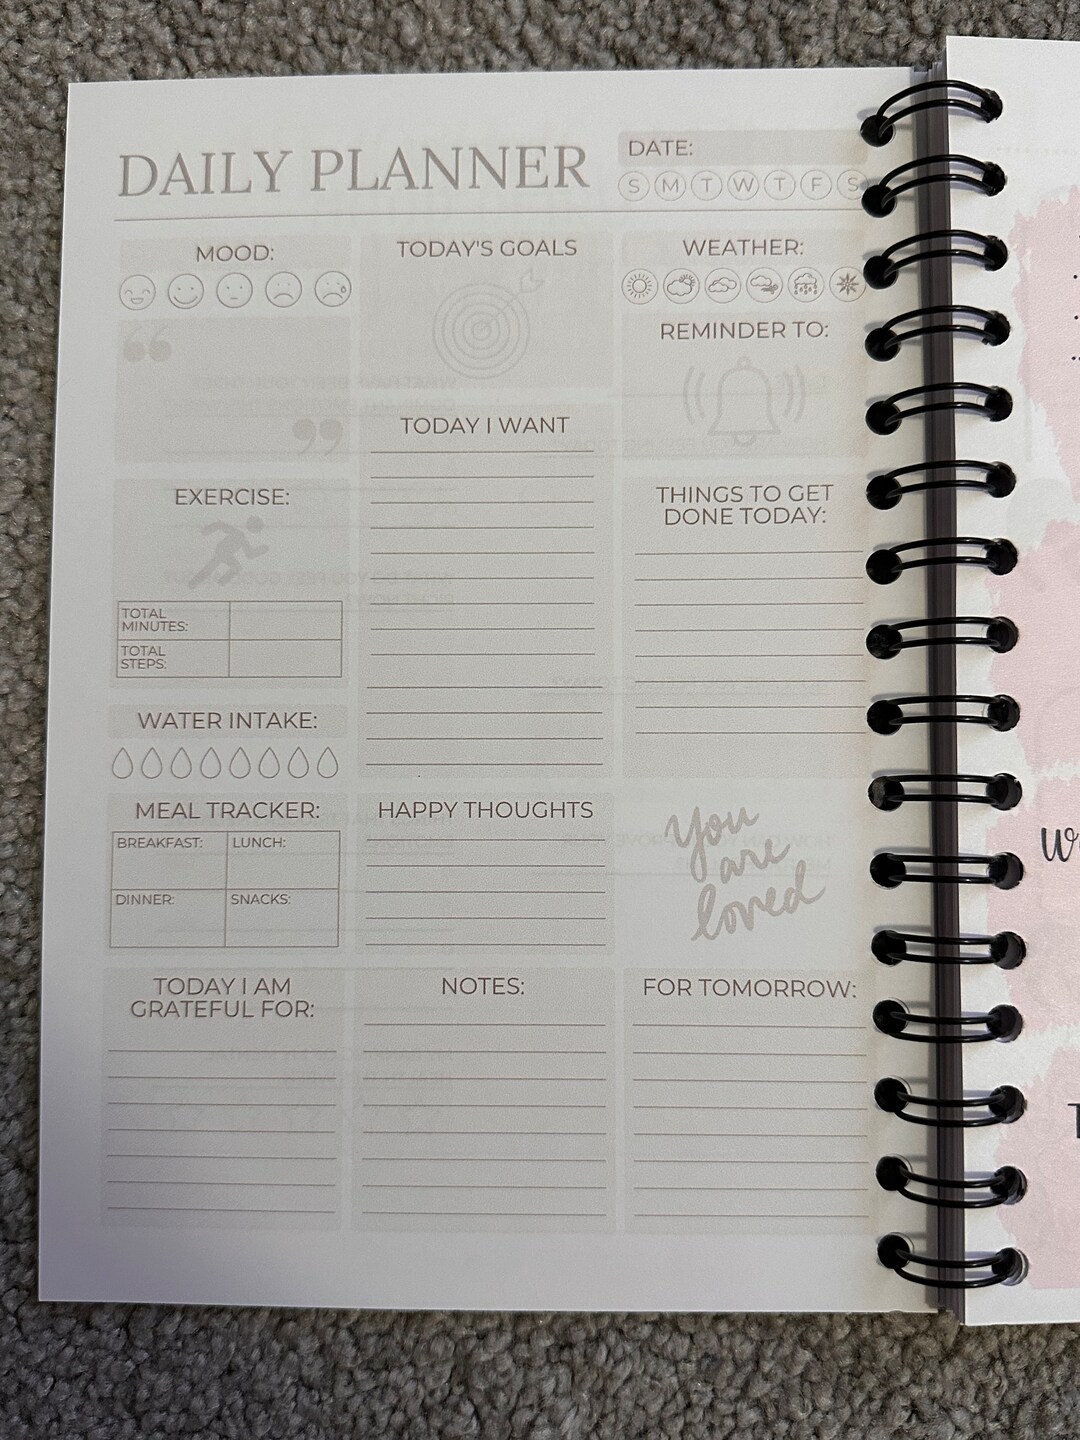 DAILY PLANNER
DATE:
S M T W T F S
MOOD:
TODAY'S GOALS
WEATHER:
REMINDER TO:
TODAY I WANT
EXERCISE:
THINGS TO GET
DONE TODAY:
TOTAL
MINUTES:
TOTAL
STEPS:
WATER INTAKE:
MEAL TRACKER:
BREAKFAST: LUNCH:
DINNER: SNACKS:
HAPPY THOUGHTS
You
are
loved
TODAY I AM
GRATEFUL FOR:
NOTES:
FOR TOMORROW: